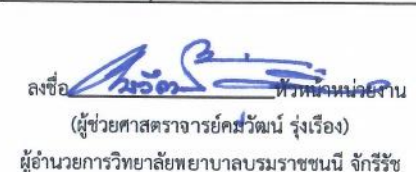 ลงชื่อ หัวหน้าหน่วยงาน
(ผู้ช่วยศาสตราจารย์คมวัฒน์ รุ่งเรือง)
ผู้อำนวยการวิทยาลัยพยาบาลบรมราชชนนี จักรีรัช